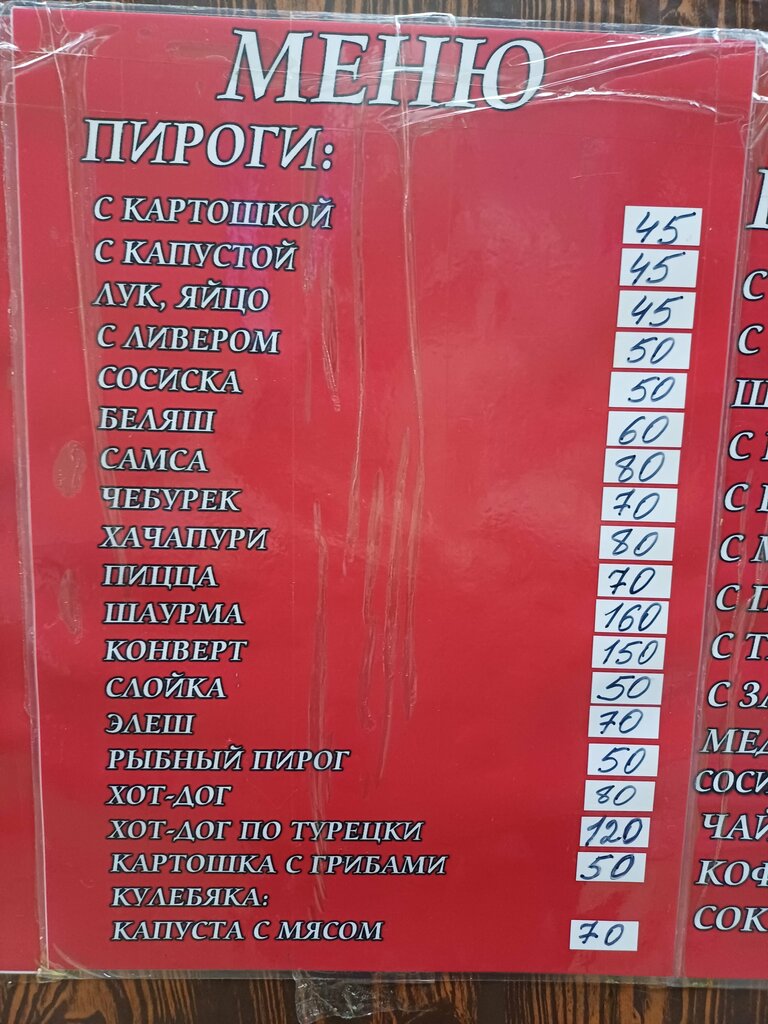 МЕНЮ
ПИРОГИ:
С КАРТОШКОЙ 45
С КАПУСТОЙ 45
ЛУК, ЯЙЦО 45
С ЛИВЕРОМ 50
СОСИСКА 50
БЕЛЯШ 60
САМСА 80
ЧЕБУРЕК 70
ХАЧАПУРИ 80
ПИЦЦА 70
ШАУРМА 160
КОНВЕРТ 150
СЛОЙКА 50
ЭЛЕШ 70
РЫБНЫЙ ПИРОГ 50
ХОТ-ДОГ 80
ХОТ-ДОГ ПО ТУРЕЦКИ 120
КАРТОШКА С ГРИБАМИ 50
КУЛЕБЯКА:
КАПУСТА С МЯСОМ 70
С
С
С
С
С
С
С
С
ЧАЙ
СОК